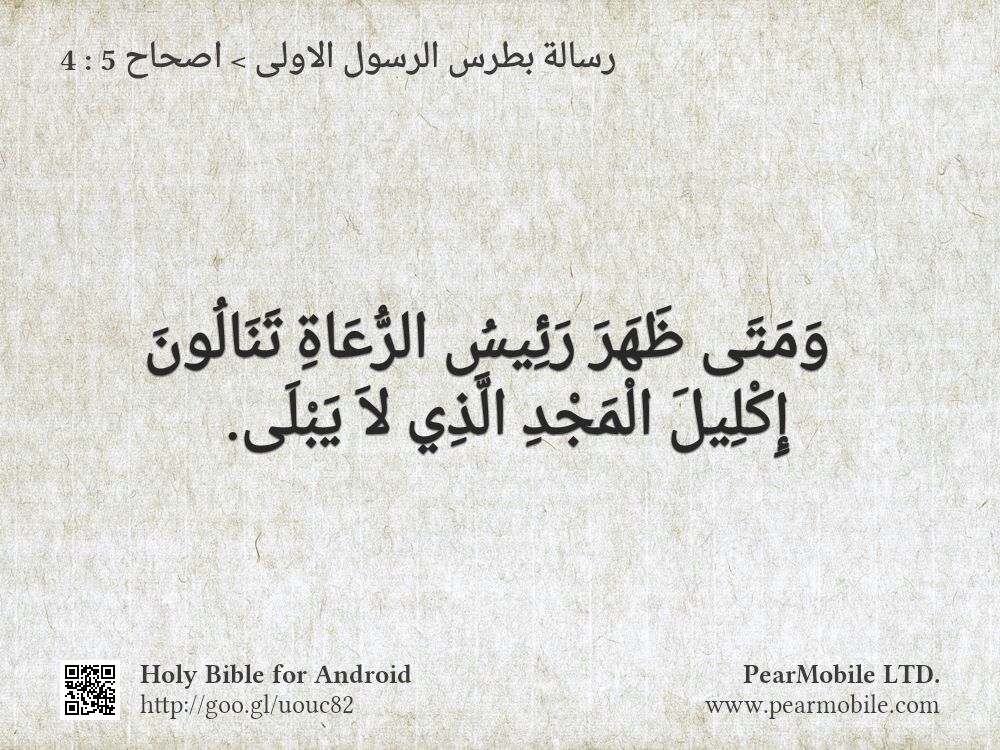 رسالة بطرس الرسول الاولى > اصحاح 5 : 4
وَمَتَى ظَهَرَ رَئِيسُ الرُّعَاةِ تَنَالُونَ
إِكْلِيلَ الْمَجْدِ الَّذِي لاَ يَبْلَى.
Holy Bible for Android
http://goo.gl/uouc82
PearMobile LTD.
www.pearmobile.com